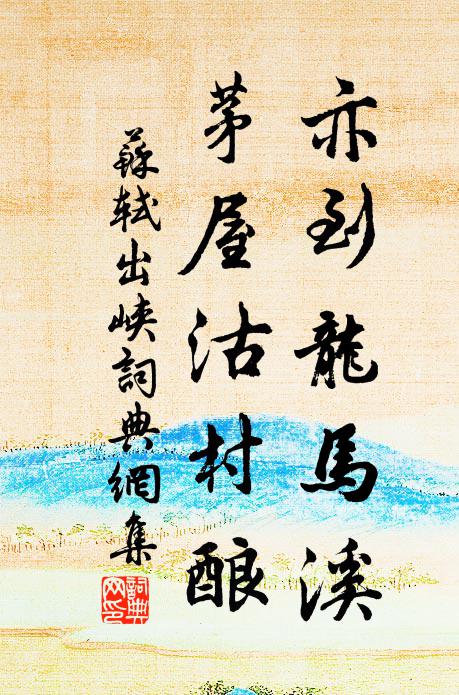 亦到龍馬溪
茅屋沽村酿
蘇軾出峽詞典網集
詞典網印